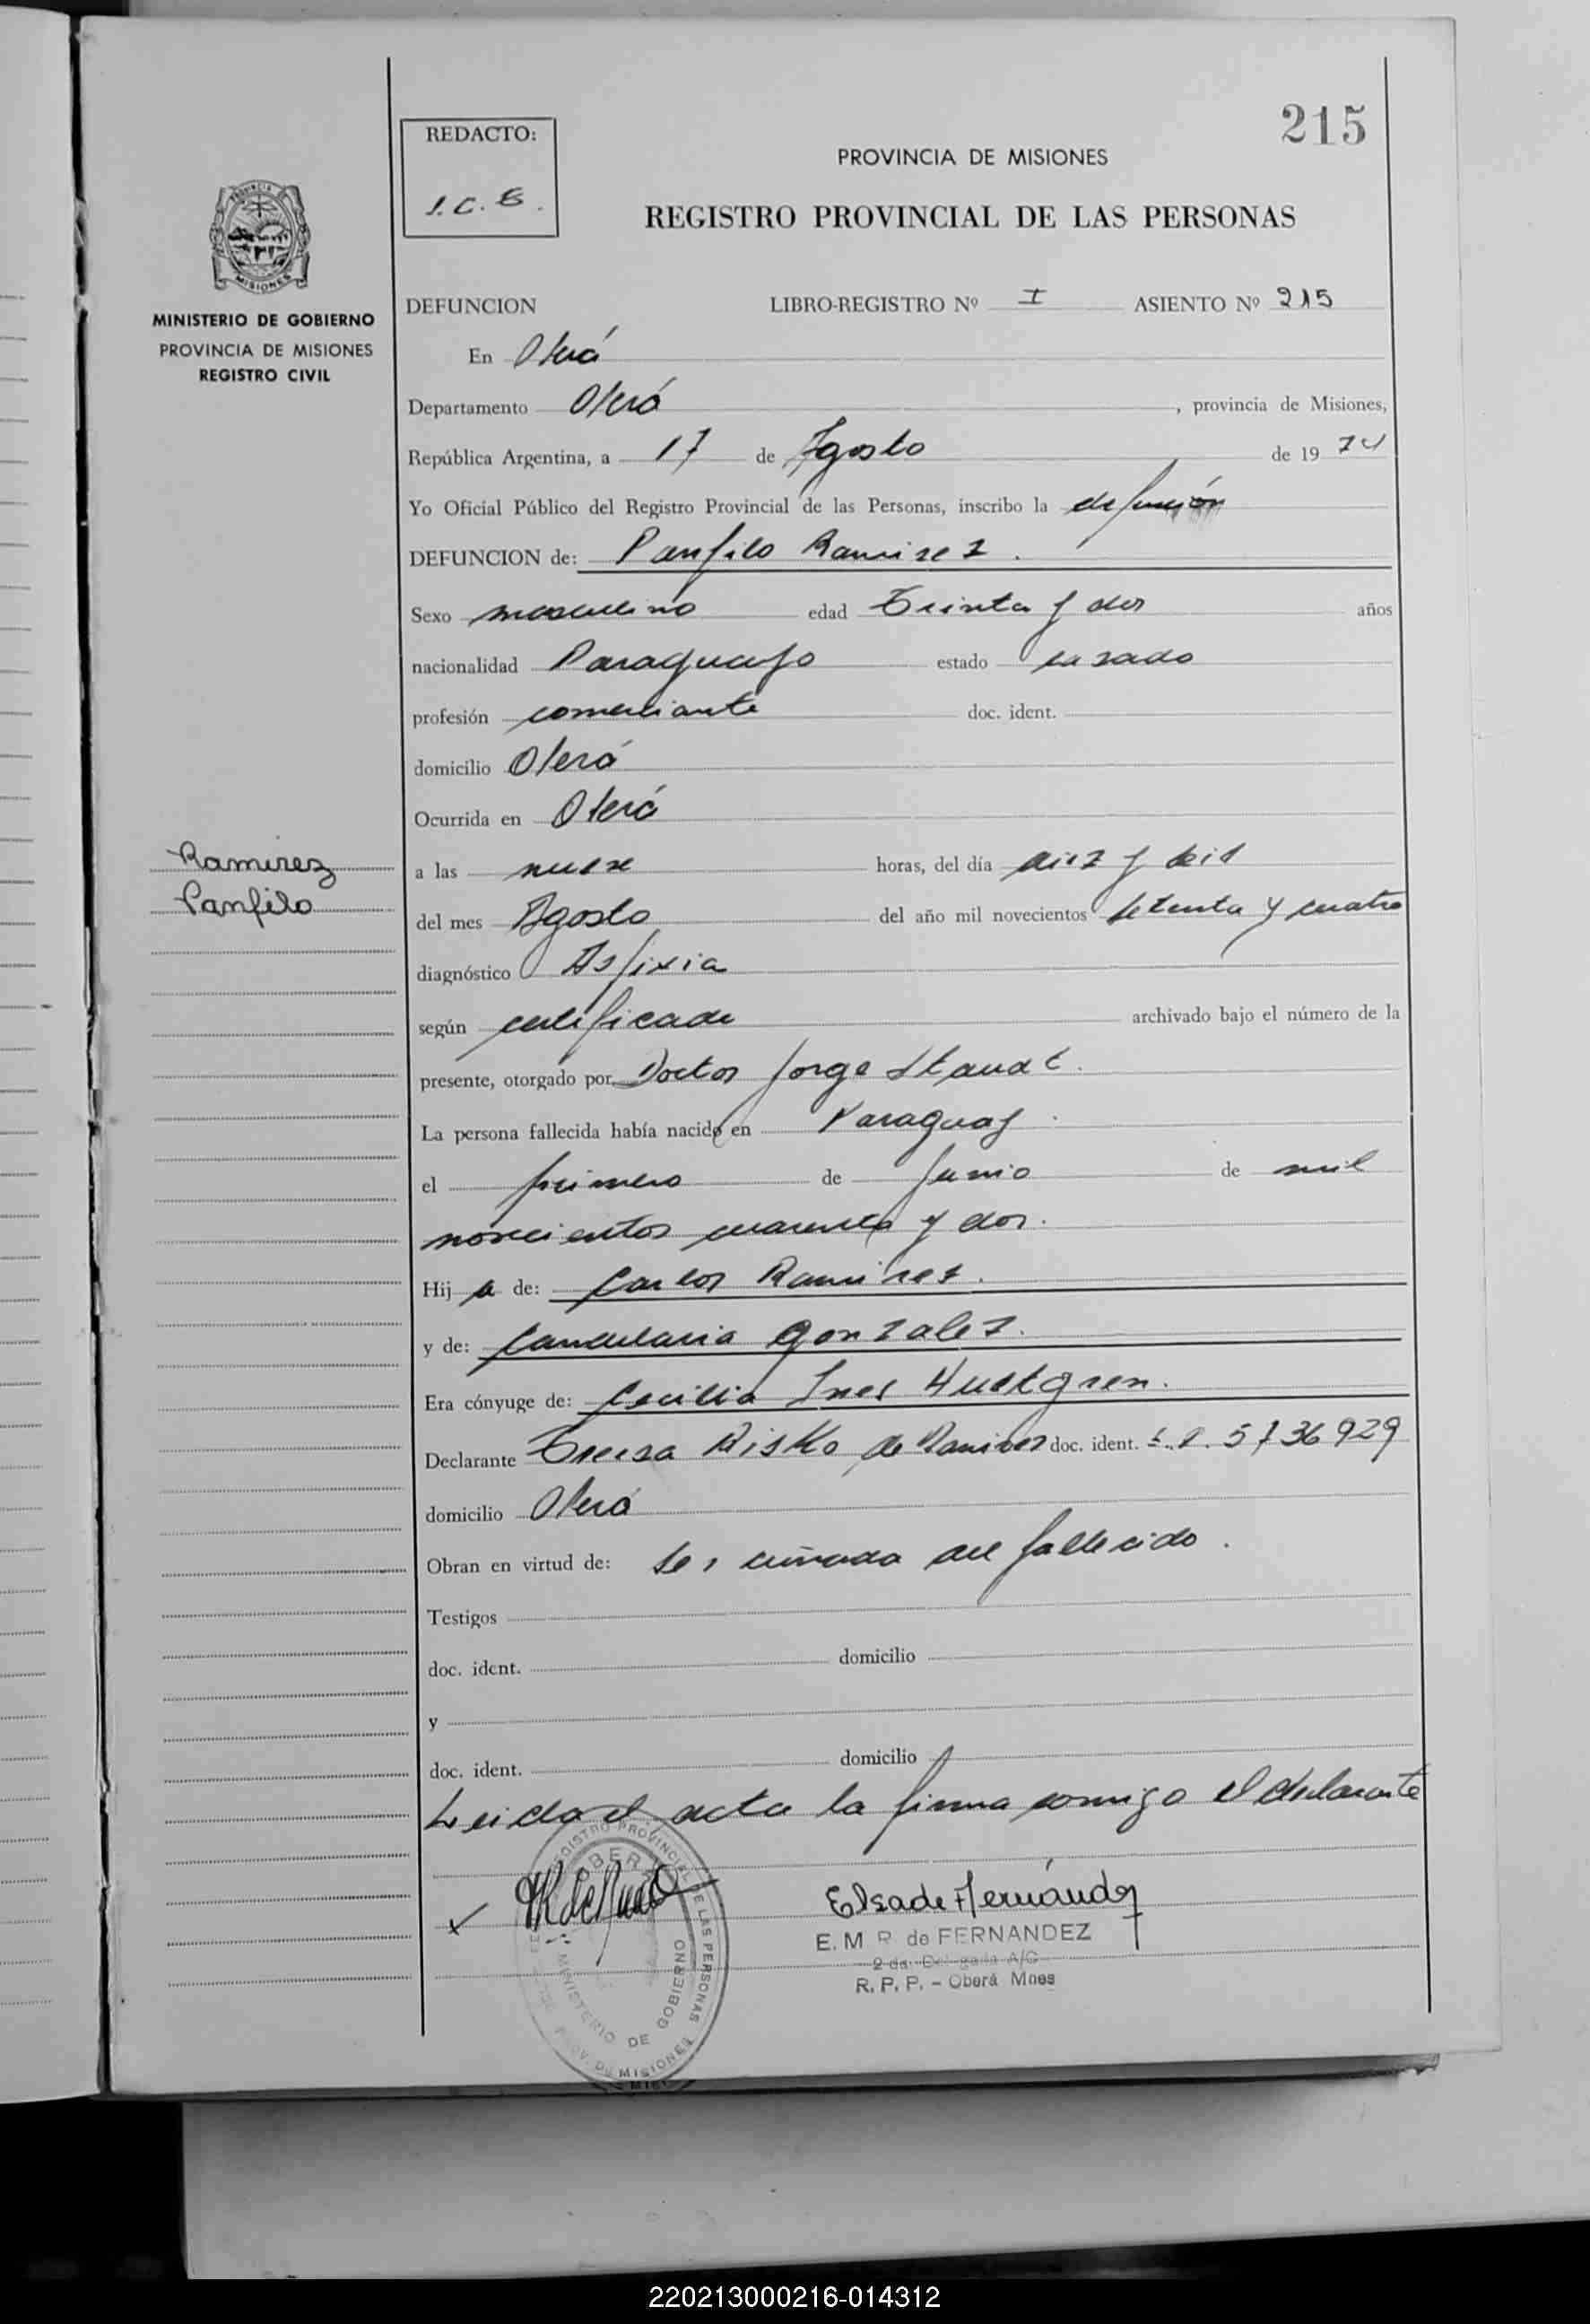 215
REDACTO:
I.C.B.
PROVINCIA DE MISIONES
REGISTRO PROVINCIAL DE LAS PERSONAS
MISIONES
MINISTERIO DE GOBIERNO
PROVINCIA DE MISIONES
REGISTRO CIVIL
DEFUNCION LIBRO-REGISTRO Nº I ASIENTO Nº 215
En Oberá
Departamento Oberá, provincia de Misiones,
República Argentina, a 17 de Agosto de 19 74
Yo Oficial Público del Registro Provincial de las Personas, inscribo la defunción
DEFUNCION de: Panfilo Ramirez.
Sexo masculino edad Treinta y dos años
nacionalidad Paraguayo estado casado
profesión comerciante doc. ident.
domicilio Oberá
Ocurrida en Oberá
Ramirez
Panfilo
a las nueve horas, del día diez y seis
del mes Agosto del año mil novecientos setenta y cuatro
diagnóstico Asfixia
según certificado archivado bajo el número de la
presente, otorgado por Doctor Jorge Staudt.
La persona fallecida había nacido en Paraguay.
el primero de Junio de mil
novecientos cuarenta y dos.
Hij o de: Carlos Ramirez.
y de: Candelaria Gonzalez.
Era cónyuge de: Cecilia Ines Hultgren.
Declarante Teresa Risko de Ramirez doc. ident. 5736929
domicilio Oberá
Obran en virtud de: ser cuñada del fallecido.
Testigos
doc. ident. domicilio
y
doc. ident. domicilio
Leida el acta la firma conmigo el declarante
REGISTRO PROVINCIAL DE LAS PERSONAS
MINISTERIO DE GOBIERNO
PROV. DE MISIONES
Elsa de Fernández
E. M R de FERNANDEZ
2 da. Delegada A/C
R. P. P. - Oberá Mnes
220213000216-014312